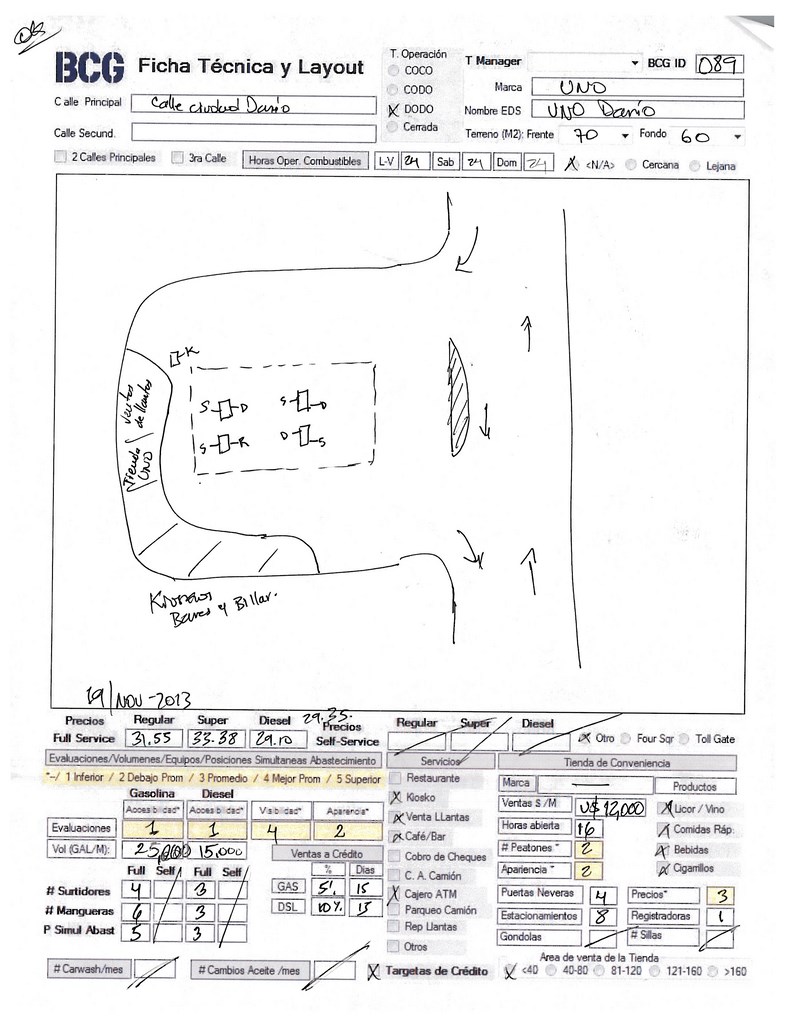 BCG Ficha Técnica y Layout
T. Operación
COCO
CODO
DODO
Cerrada
T Manager
BCG ID 089
Marca UNO
Nombre EDS UNO Darío
Terreno (M2): Frente 70 Fondo 60
Calle Principal Calle ciudad Darío
Calle Secund.
2 Calles Principales 3ra Calle Horas Oper. Combustibles L-V 24 Sab 24 Dom 24 <N/A> Cercana Lejana
K
S D S D
S R D S
Ventas de llantas
Tienda UNO
Kioscos
Bares y Billar.
19/NOV-2013
Precios Regular Super Diesel 29.35.
Full Service 31.55 33.38 29.10
Precios Self-Service Regular Super Diesel
Otro Four Sqr Toll Gate
Evaluaciones/Volumenes/Equipos/Posiciones Simultaneas Abastecimiento
*-/ 1 Inferior / 2 Debajo Prom / 3 Promedio / 4 Mejor Prom / 5 Superior
Gasolina Diesel
Accesibilidad* Accesibilidad* Visibilidad* Aparencia*
Evaluaciones 1 1 4 2
Vol (GAL/M): 25,000 15,000
Full Self Full Self
# Surtidores 4 3
# Mangueras 6 3
P Simul Abast 5 3
Ventas a Crédito
% Dias
GAS 5% 15
DSL 10% 15
# Carwash/mes
# Cambios Aceite /mes
Servicios
Restaurante
Kiosko
Venta LLantas
Café/Bar
Cobro de Cheques
C. A. Camión
Cajero ATM
Parqueo Camión
Rep Llantas
Otros
Targetas de Crédito
Tienda de Conveniencia
Marca —
Ventas $ /M U$ 12,000
Horas abierta 16
# Peatones * 2
Apariencia * 2
Productos
Licor / Vino
Comidas Ráp.
Bebidas
Cigarrillos
Puertas Neveras 4 Precios* 3
Estacionamientos 8 Registradoras 1
Gondolas # Sillas
Area de venta de la Tienda
<40 40-80 81-120 121-160 >160